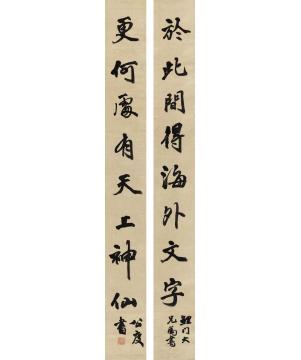 於此間得海外文字
兄屬書
更何處有天上神仙
公度書